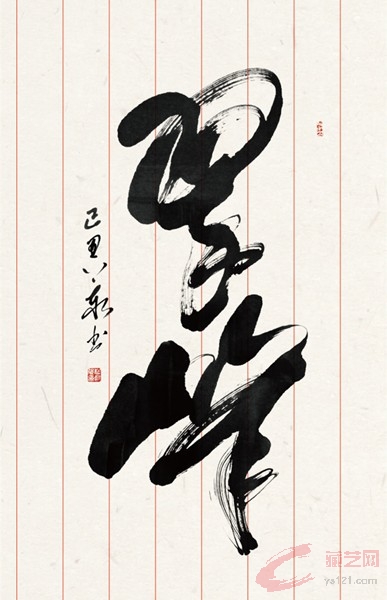 翠峰
己丑
书
藏艺网
ys121.com